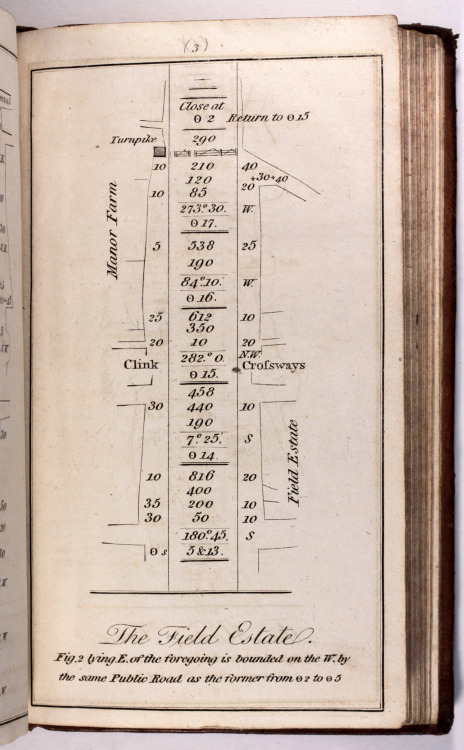 (3)
Close at
Θ 2 Return to Θ 15
290
Turnpike
10 210 40
120 +30+40
10 85 20
273.° 30. W.
Θ 17.
5 538 25
190
84° 10. W.
Θ 16.
25 612 10
350
20 10 20
282.° 0. N.W.
Clink Crofsways
Θ 15.
458
30 440 10
190
7° 25. S
Θ 14.
10 816 20
400
35 200 10
30 50 10
180° 45. S
Θ s 5 & 13.
Manor Farm
Field Estate
The Field Estate.
Fig. 2 lying E. of the foregoing is bounded on the W. by
the same Public Road as the former from Θ 2 to Θ 5